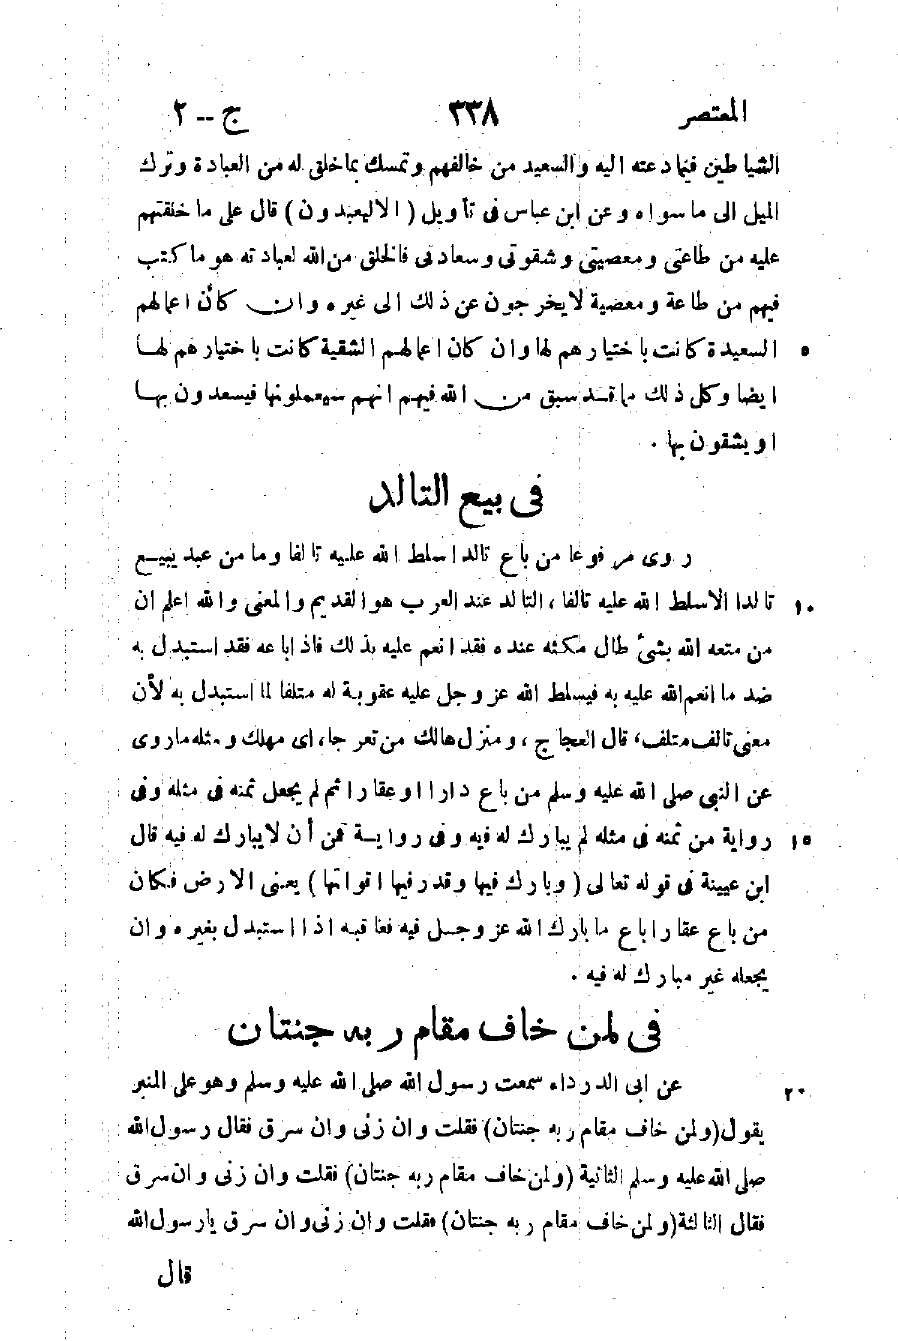 المعتصر ٣٣٨ ج -- ٢
الشياطين فيما دعته اليه والسعيد من خالفهم وتمسك بما خلق له من العبادة وترك
الميل الى ما سواه وعن ابن عباس فى تأويل (الاليعبدون) قال على ما خلقتهم
عليه من طاعتى ومعصيتى وشقوتى وسعادتى فالخلق من الله لعبادته هو ما كتب
فيهم من طاعة ومعصية لايخرجون عن ذلك الى غيره وان كأن اعمالهم
السعيدة كانت باختيارهم لها وان كان اعمالهم الشقية كانت باختيارهم لها ٥
ايضا وكل ذلك مما قد سبق من الله فيهم انهم سيعملونها فيسعدون بها
اويشقون بها .
فى بيع التالد
روى مرفوعا من باع تالدا سلط الله عليه تالفا وما من عبد يبيع
تالدا الاسلط الله عليه تالفا، التالد عند العرب هو القديم والمعنى والله اعلم ان ١٠
من متعه الله بشئ طال مكثه عنده فقد انعم عليه بذلك فاذا باعه فقد استبدل به
ضد ما انعم الله عليه به فيسلط الله عز وجل عليه عقوبة له متلفا لما استبدل به لأن
معنى تالف متلف، قال العجاج، ومنزل هالك من تعرجا، اى مهلك ومثله ماروى
عن النبى صلى الله عليه وسلم من باع دارا اوعقارا ثم لم يجعل ثمنه فى مثله وفى
رواية من ثمنه فى مثله لم يبارك له فيه وفى رواية قمن أن لايبارك له فيه قال ١٥
ابن عيينة فى قوله تعالى (وبارك فيها وقدر فيها اقواتها) يعنى الارض فكان
من باع عقارا باع ما بارك الله عز وجل فيه فعاقبه اذا استبدل بغيره وان
يجعله غير مبارك له فيه .
فى لمن خاف مقام ربه جنتان
عن ابى الدرداء سمعت رسول الله صلى الله عليه وسلم وهو على المنبر ٢٠
يقول (ولمن خاف مقام ربه جنتان) فقلت وان زنى وان سرق فقال رسول الله
صلى الله عليه وسلم الثانية (ولمن خاف مقام ربه جنتان) فقلت وان زنى وان سرق
فقال الثالثة (ولمن خاف مقام ربه جنتان) فقلت وان زنى وان سرق يارسول الله
قال